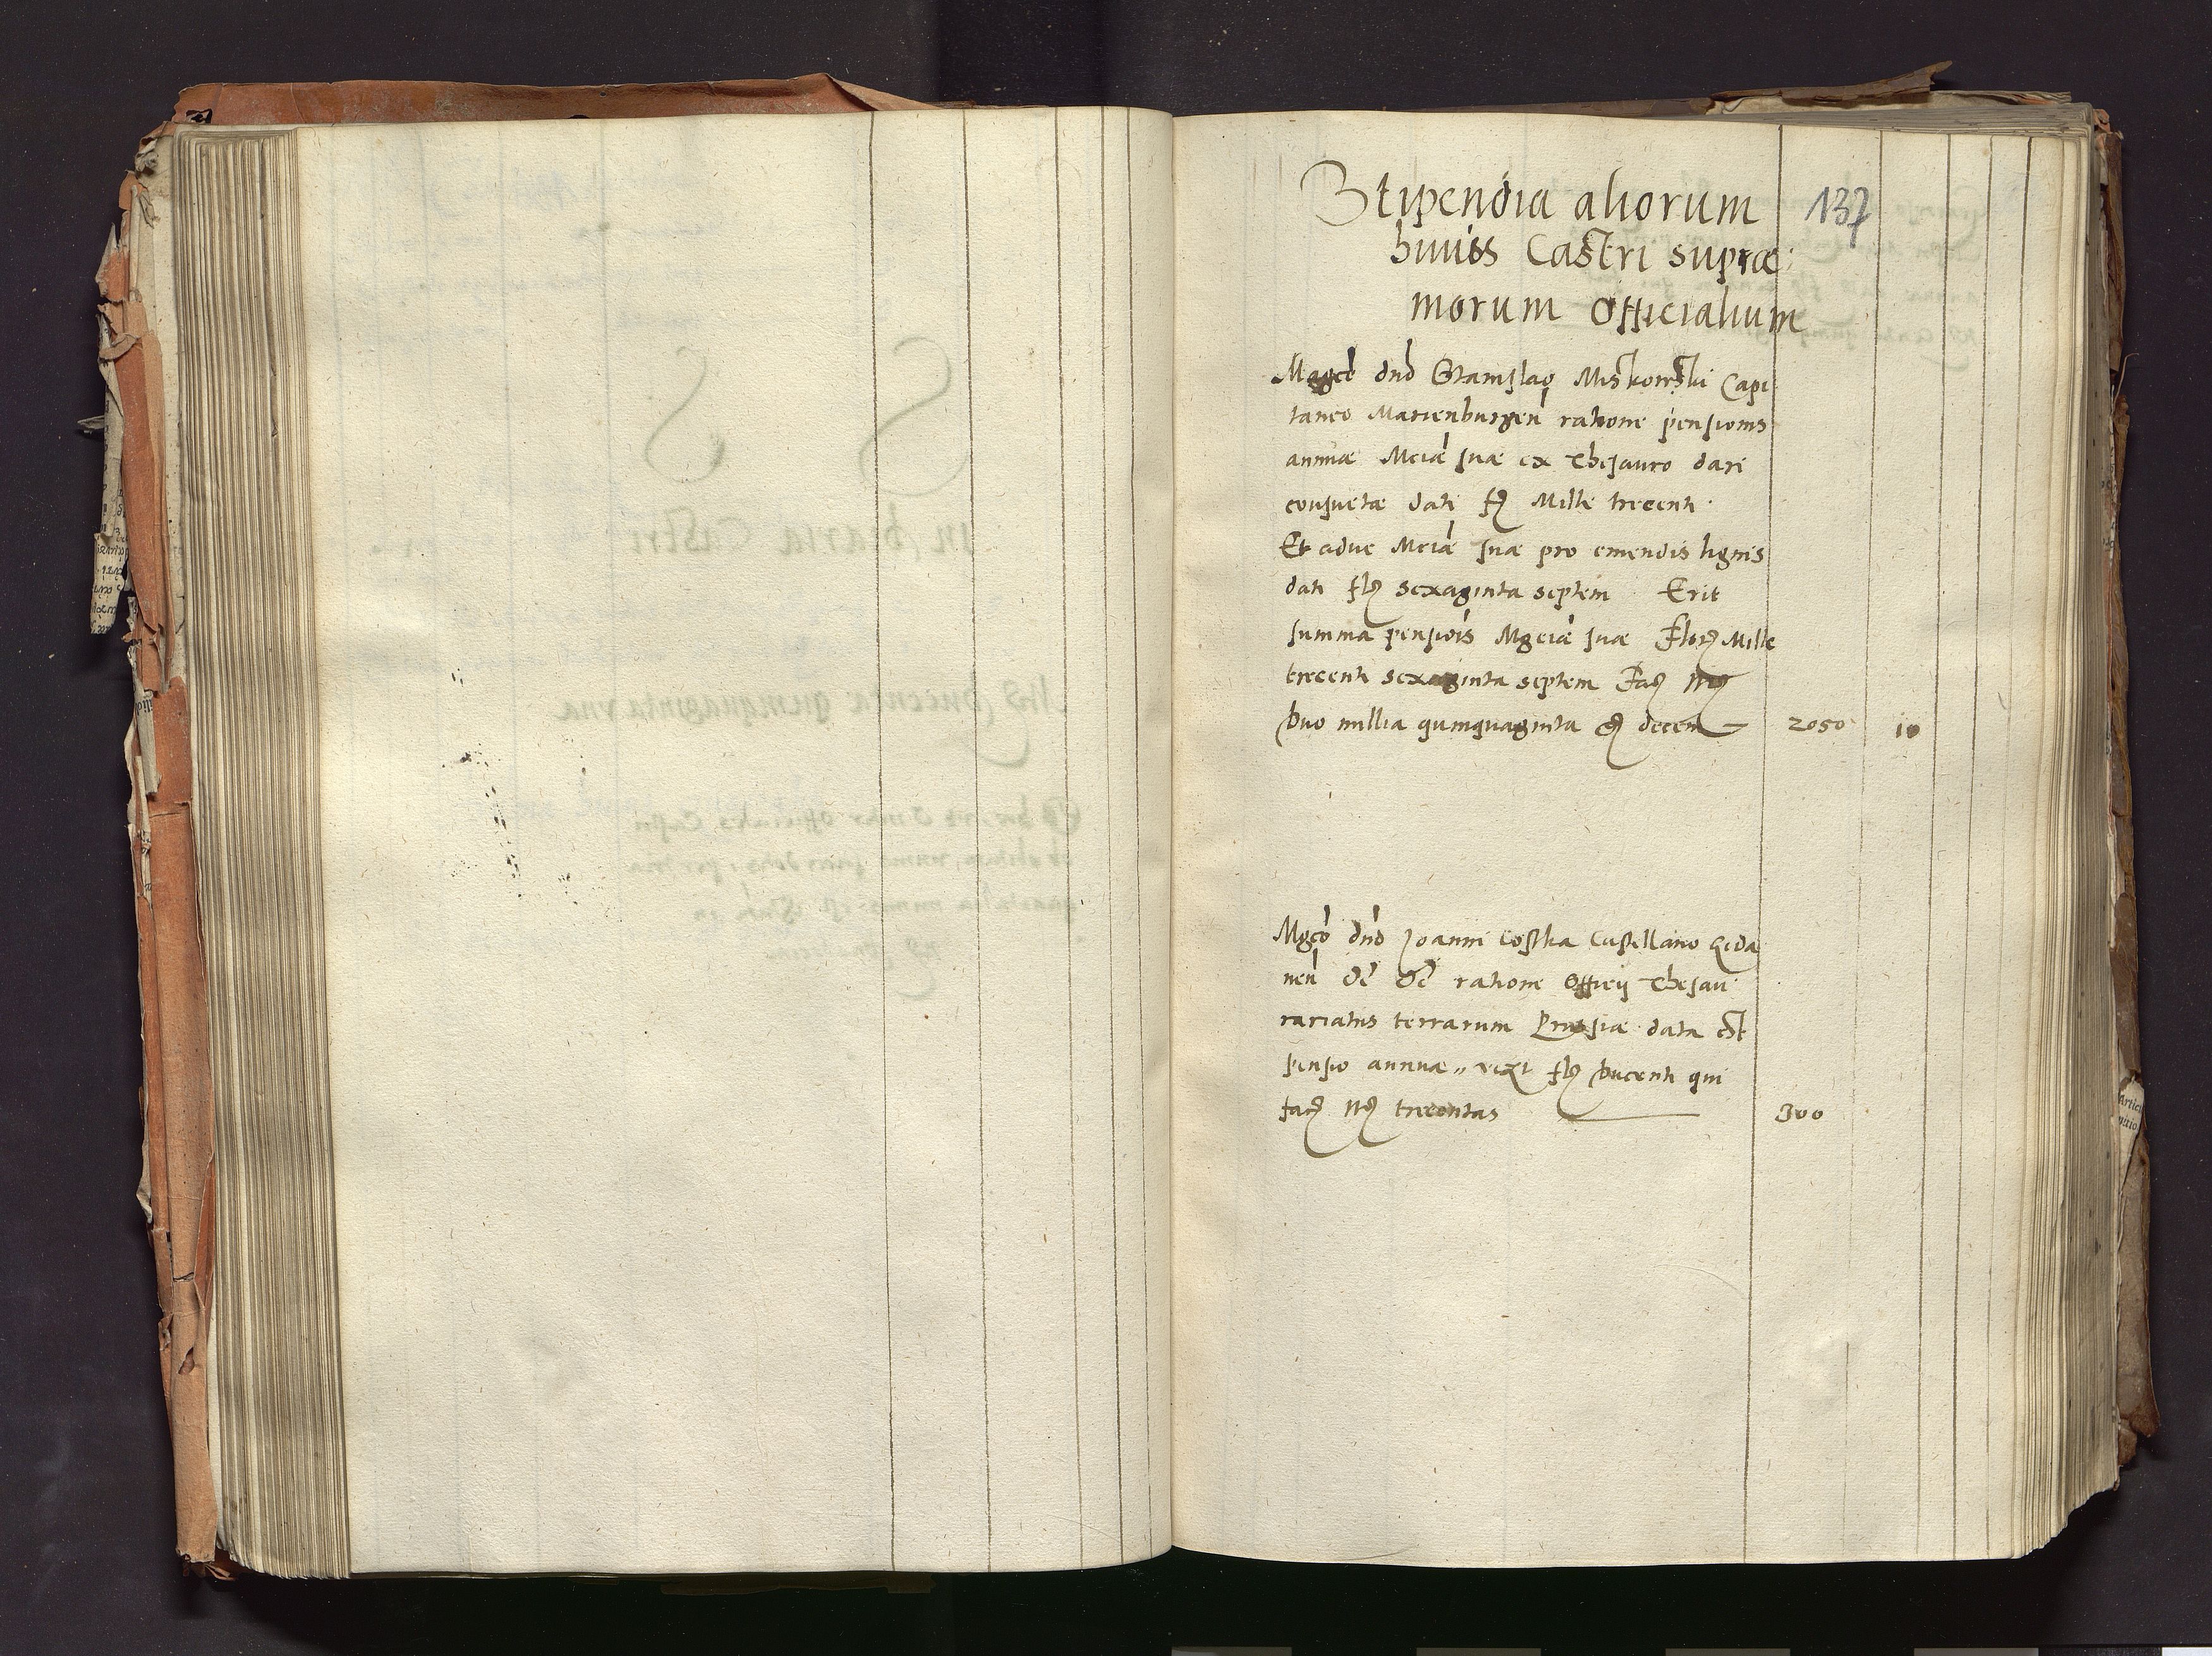 Stipendia aliorum
137
huius Castri supræ:
morum Officialium
Magco dno Stanislao Miskowski Capi
taneo Marienburgen ratione pensionis
annuæ Mciæ suæ ex Thesauro dari
consuetæ dati fl Mille trecenti
Et aduc Mciæ suæ pro emendis lignis
dati fl Sexaginta septem Erit
summa pensiois Mgciæ suæ Flor Mille
trecenti sexaginta septem Fac mr
Duo millia quinquaginta gr decem 2050 10
Mgco dno Joanni Costka Castellano Geda
nen ratione Officij Thesau
rariatus terrarum Prussiæ data est
pensio annuæ fl Ducenti qui
fac mr trecentas 300